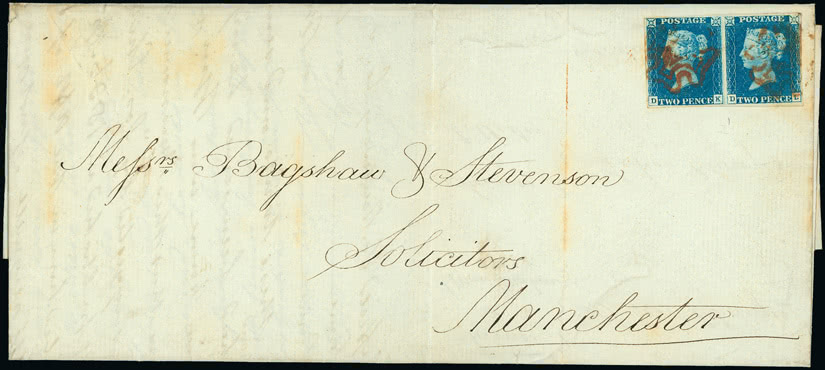 POSTAGE POSTAGE
D K D L
TWO PENCE TWO PENCE
Messrs. Bagshaw & Stevenson
Solicitors
Manchester